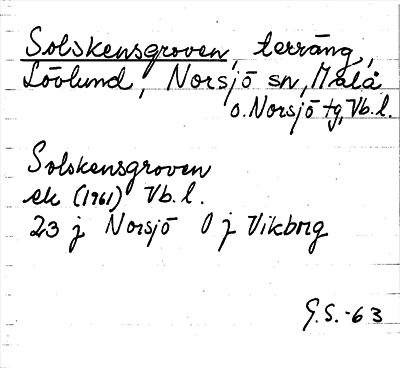 Solskensgroven, terräng,
Lövlund, Norsjö sn, Malå
o. Norsjö tg, Vb.l.
Solskensgroven
ek (1961) Vb.l.
23 j Norsjö O j Vikborg
G.S.-63